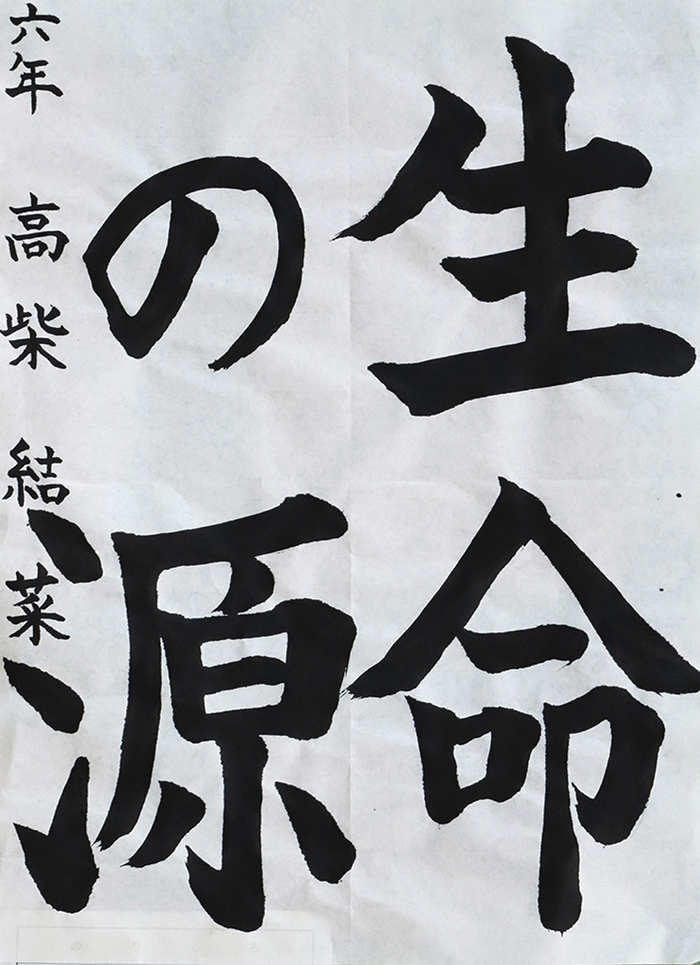 生命
の源
六年 高柴 結菜